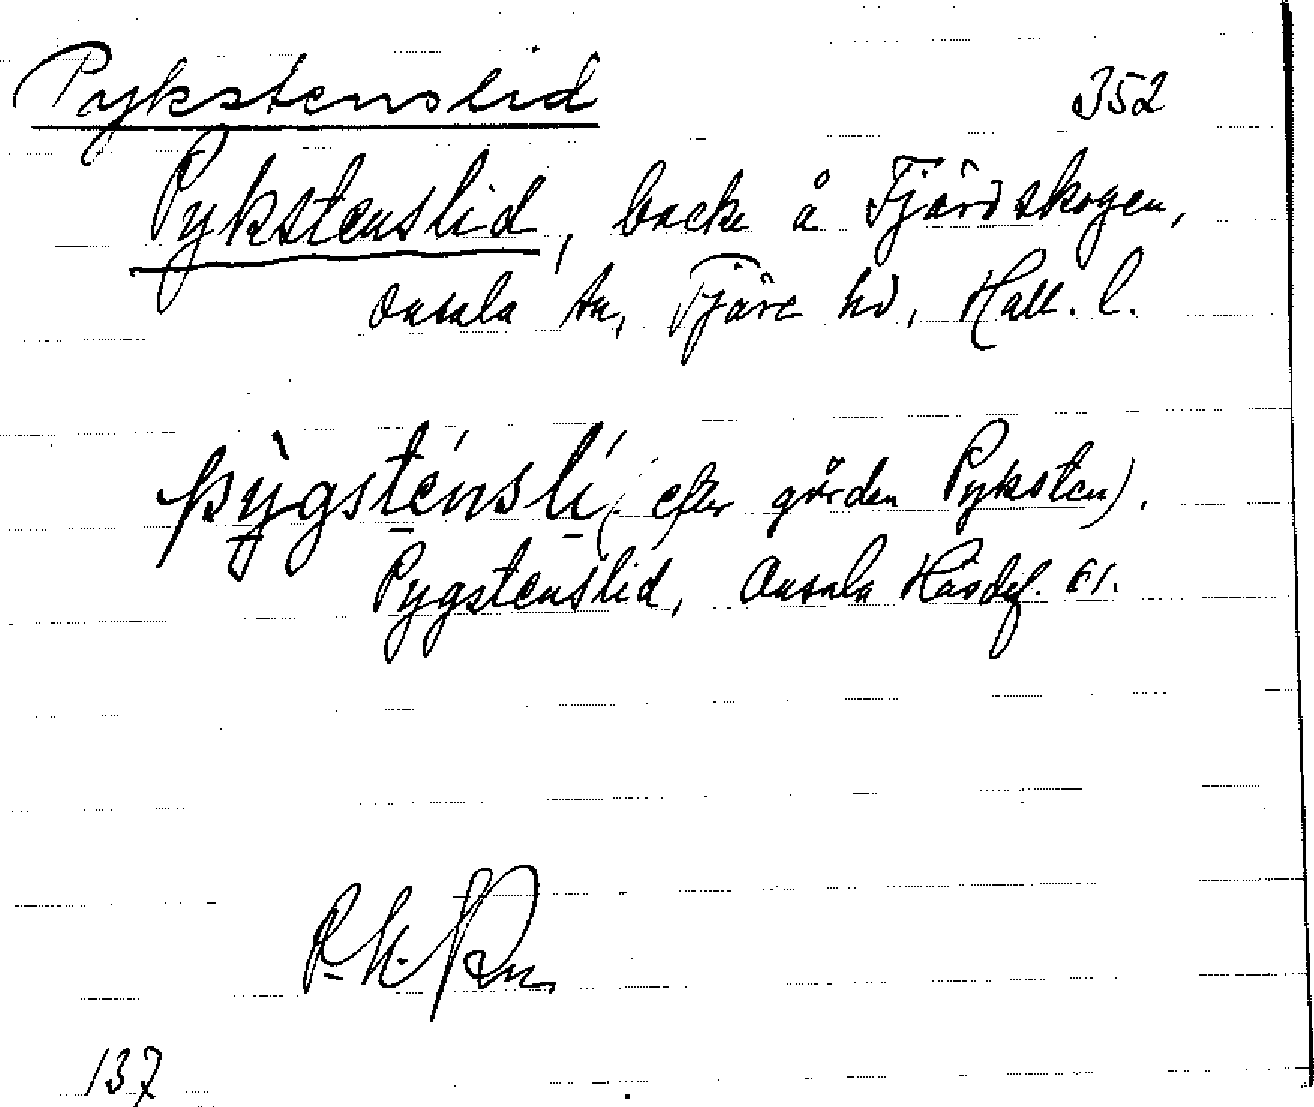 Pykstenslid 352
Pykstenslid, backe å Fjärdskogen,
Onsala sn, Fjäre hd, Hall. l.
pỳgsténslí (efter gården Pyksten).
Pygstenslid, Onsala Häsdef. 61.
137